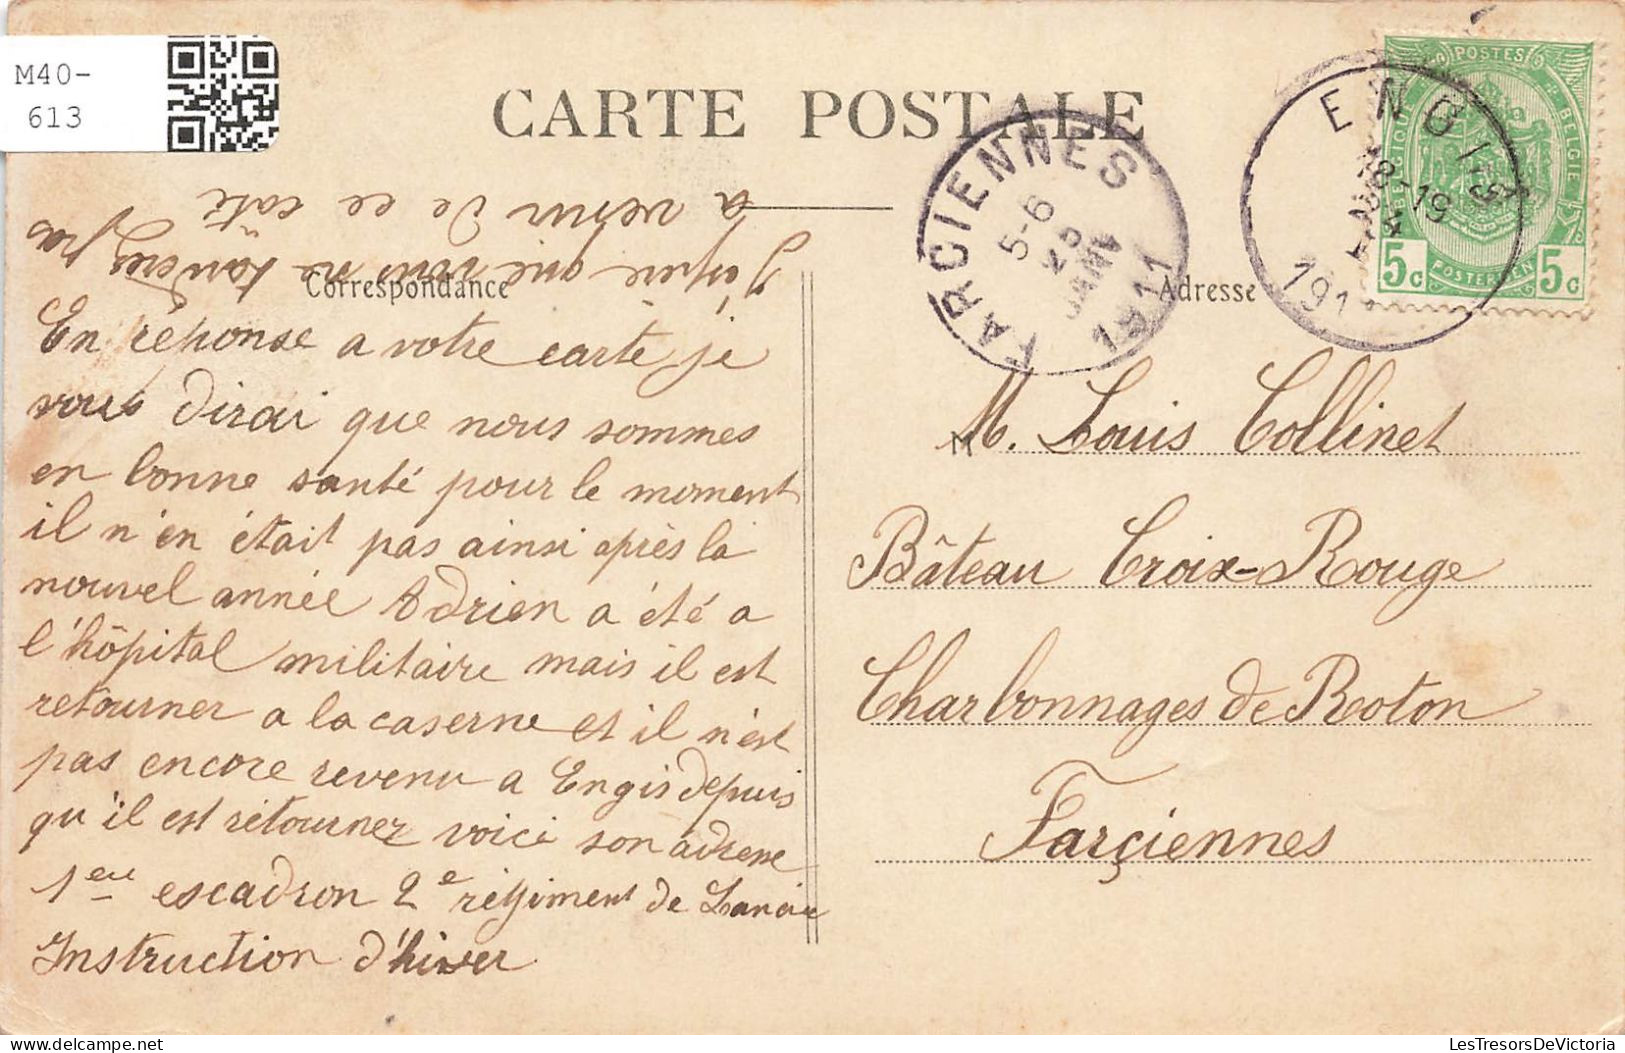 M40-
613
CARTE POSTALE
Correspondance
Adresse
En réponse a votre carte je
vous dirai que nous sommes
en bonne santé pour le moment
il n'en était pas ainsi après la
nouvel année Adrien a été a
l'hôpital militaire mais il est
retourner a la caserne et il n'est
pas encore revenu a Engis depuis
qu'il est retourner voici son adresse
1er escadron 2e régiment de Lancier
Instruction d'hiver
J'espère que vous ne tarderez pas
a venir de ce coté
FARCIENNES
5-6
25
JANV
1911
ENGIS
18-19
1911
POSTES
BELGIQUE
BELGIE
POSTERIJEN
5c
5c
M. Louis Collinet
Bâteau Croix-Rouge
Charbonnages de Roton
Farçiennes
LesTresorsDeVictoria